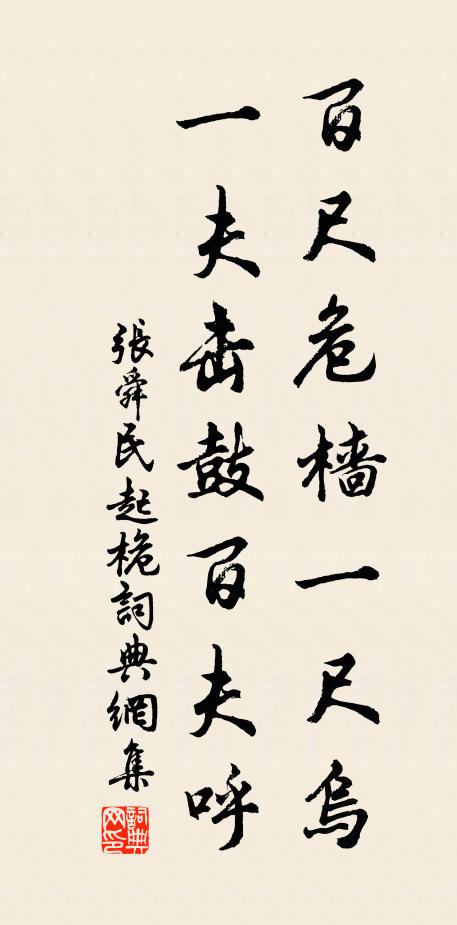 百尺危檣一尺烏
一夫击鼓百夫呼
張舜民起桅詞典網集
詞典
网印